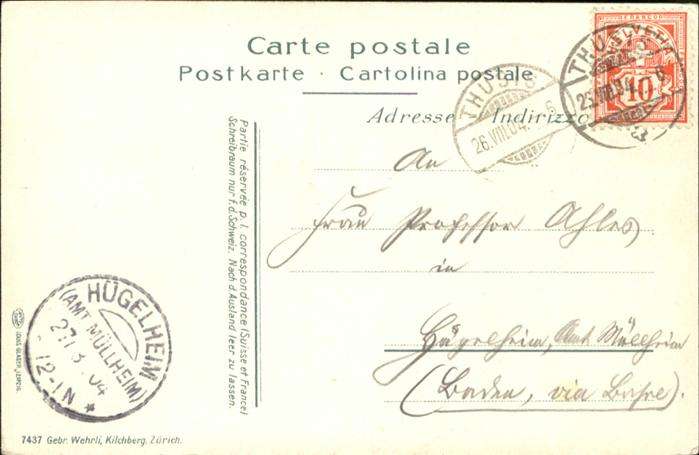 Carte postale
Postkarte · Cartolina postale
Adresse Indirizzo
THUSIS
26.VIII.04. 6
THUSIS
HELVETIA
FRANCO
10
An
Frau Professor Ahles
in
Hügelheim, Amt Müllheim
(Baden, via Basel)
Partie réservée p. l. correspondance (Suisse et France)
Schreibraum nur f. d. Schweiz. Nach d. Ausland leer zu lassen.
HÜGELHEIM
(AMT MÜLLHEIM)
04
12-1N
7437 Gebr. Wehrli, Kilchberg. Zürich.